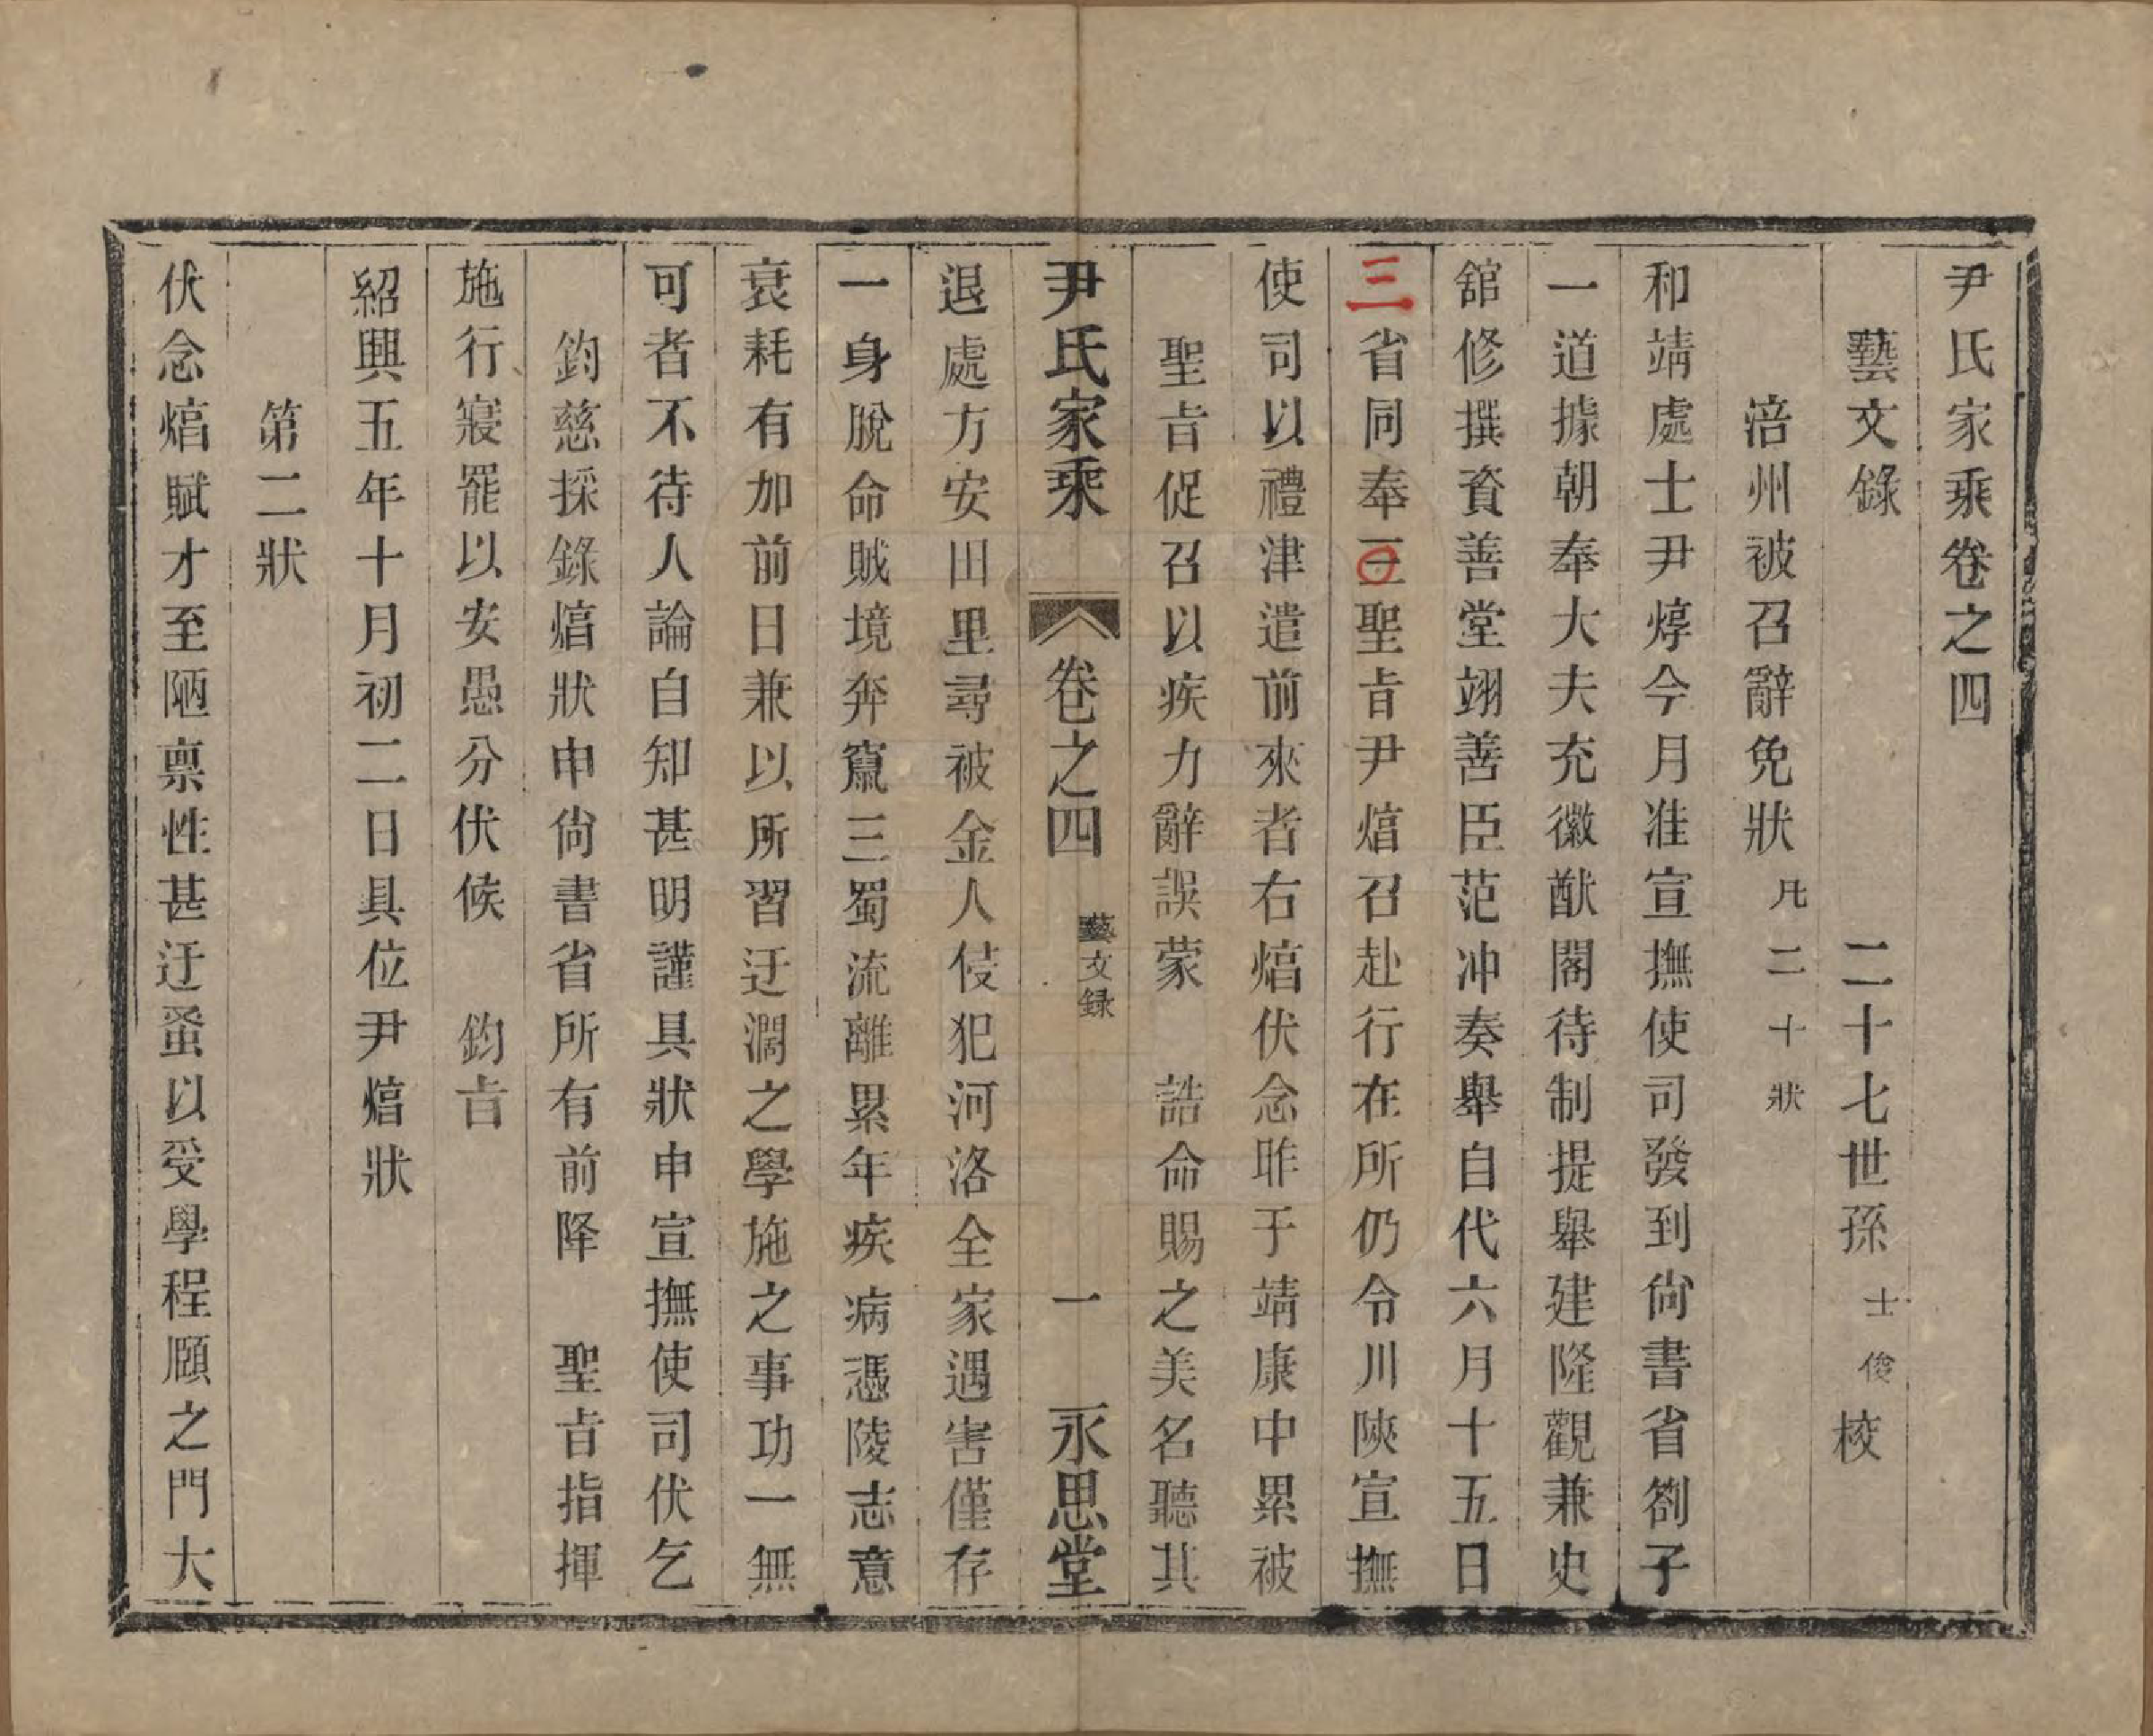 尹氏家乘卷之四
藝文錄　二十七世孫士俊校
涪州被召辭免狀凡二十狀
和靖處士尹焞今月准宣撫使司發到尙書省劄子
一道據朝奉大夫充徽猷閣待制提舉建隆觀兼史
舘修撰資善堂翊善臣范冲奏舉自代六月十五日
三省同奉三聖旨尹焞召赴行在所仍令川陝宣撫
使司以禮津遣前來者右焞伏念昨于靖康中累被
聖旨促召以疾力辭誤蒙　誥命賜之美名聽其
尹氏家乘　卷之四　藝文録　一　永思堂
退處方安田里尋被金人侵犯河洛全家遇害僅存
一身脫命賊境奔竄三蜀流離累年疾病憑陵志意
衰耗有加前日兼以所習迂濶之學施之事功一無
可者不待人論自知甚明謹具狀申宣撫使司伏乞
鈞慈採錄焞狀申尙書省所有前降　聖旨指揮
施行寢罷以安愚分伏候　鈞旨
紹興五年十月初二日具位尹焞狀
第二狀
伏念焞賦才至陋禀性甚迂蚤以受學程頤之門大